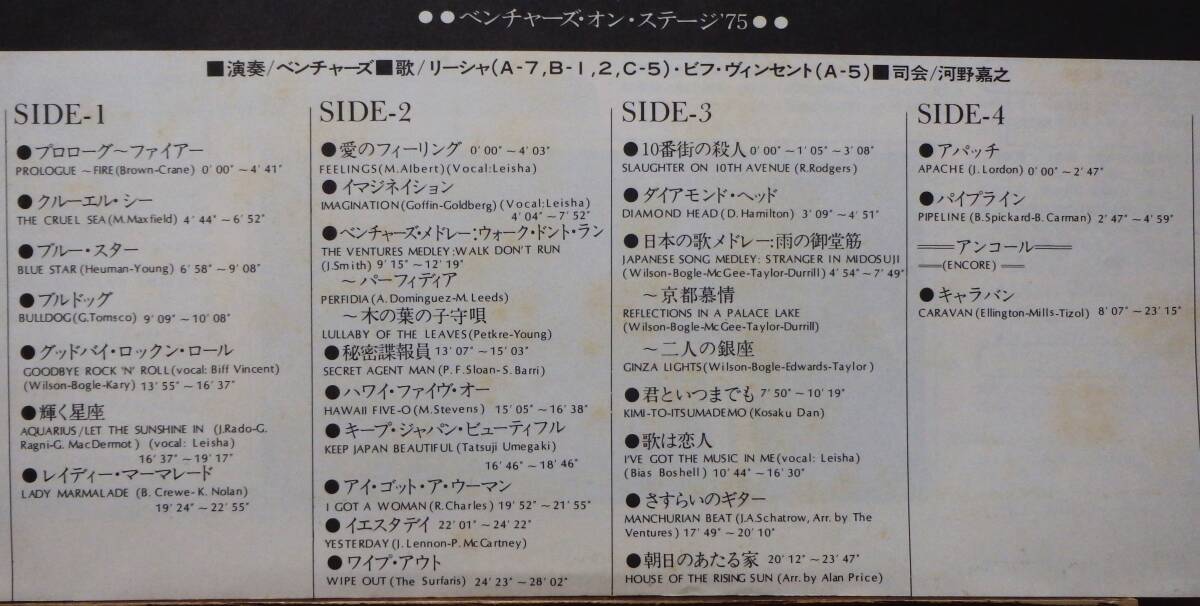 ●●ベンチャーズ・オン・ステージ'75●●
■演奏/ベンチャーズ■歌/リーシャ(A-7,B-1,2,C-5)・ビフ・ヴィンセント(A-5)■司会/河野嘉之
SIDE-1
●プロローグ～ファイアー
PROLOGUE ~FIRE(Brown-Crane) 0'00"~4'41"
●クルーエル・シー
THE CRUEL SEA(M.Maxfield) 4'44"~6'52"
●ブルー・スター
BLUE STAR(Heuman-Young) 6'58"~9'08"
●ブルドッグ
BULLDOG(G.Tomsco) 9'09"~10'08"
●グッドバイ・ロックン・ロール
GOODBYE ROCK 'N' ROLL(vocal: Biff Vincent)
(Wilson-Bogle-Kary) 13'55"~16'37"
●輝く星座
AQUARIUS/LET THE SUNSHINE IN (J.Rado-G.
Ragni-G. MacDermot) (vocal: Leisha)
16'37"~19'17"
●レイディー・マーマレード
LADY MARMALADE (B. Crewe-K. Nolan)
19'24"~22'55"
SIDE-2
●愛のフィーリング 0'00"~4'03"
FEELINGS(M.Albert)(Vocal:Leisha)
●イマジネイション
IMAGINATION(Goffin-Goldberg)(Vocal:Leisha)
4'04"~7'52"
●ベンチャーズ・メドレー:ウォーク・ドント・ラン
THE VENTURES MEDLEY:WALK DON'T RUN
(J.Smith) 9'15"~12'19"
～パーフィディア
PERFIDIA(A.Dominguez-M.Leeds)
～木の葉の子守唄
LULLABY OF THE LEAVES(Petkre-Young)
●秘密諜報員 13'07"~15'03"
SECRET AGENT MAN(P.F.Sloan-S.Barri)
●ハワイ・ファイヴ・オー
HAWAII FIVE-O(M.Stevens) 15'05"~16'38"
●キープ・ジャパン・ビューティフル
KEEP JAPAN BEAUTIFUL(Tatsuji Umegaki)
16'46"~18'46"
●アイ・ゴット・ア・ウーマン
I GOT A WOMAN(R.Charles) 19'52"~21'55"
●イエスタデイ 22'01"~24'22"
YESTERDAY(J.Lennon-P.McCartney)
●ワイプ・アウト
WIPE OUT(The Surfaris) 24'23"~28'02"
SIDE-3
●10番街の殺人 0'00"~1'05"~3'08"
SLAUGHTER ON 10TH AVENUE(R.Rodgers)
●ダイアモンド・ヘッド
DIAMOND HEAD(D.Hamilton) 3'09"~4'51"
●日本の歌メドレー:雨の御堂筋
JAPANESE SONG MEDLEY: STRANGER IN MIDOSUJI
(Wilson-Bogle-McGee-Taylor-Durrill) 4'54"~7'49"
～京都慕情
REFLECTIONS IN A PALACE LAKE
(Wilson-Bogle-McGee-Taylor-Durrill)
～二人の銀座
GINZA LIGHTS(Wilson-Bogle-Edwards-Taylor)
●君といつまでも 7'50"~10'19"
KIMI-TO-ITSUMADEMO(Kosaku Dan)
●歌は恋人
I'VE GOT THE MUSIC IN ME(vocal: Leisha)
(Bias Boshell) 10'44"~16'30"
●さすらいのギター
MANCHURIAN BEAT(J.A.Schatrow, Arr. by The
Ventures) 17'49"~20'10"
●朝日のあたる家 20'12"~23'47"
HOUSE OF THE RISING SUN (Arr. by Alan Price)
SIDE-4
●アパッチ
APACHE(J.Lordon) 0'00"~2'47"
●パイプライン
PIPELINE(B.Spickard-B.Carman) 2'47"~4'59"
アンコール
(ENCORE)
●キャラバン
CARAVAN(Ellington-Mills-Tizol) 8'07"~23'15"